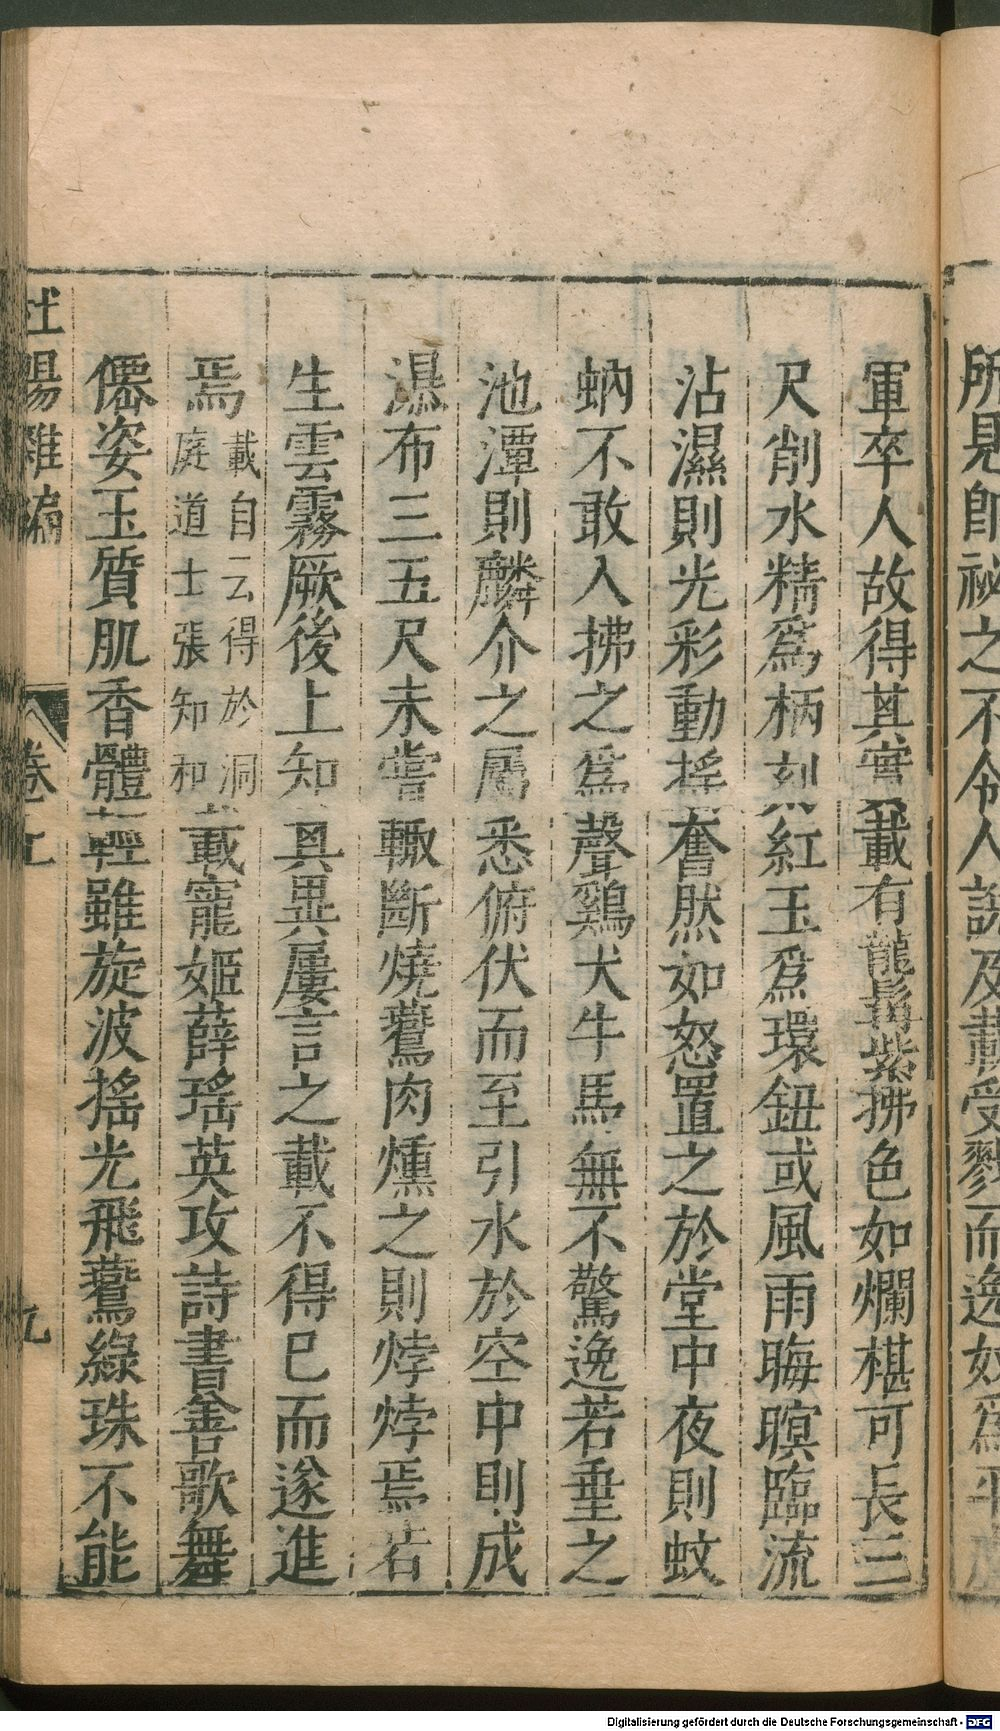 所見即祕之不令人說及載受戮而逸奴爲平盧
軍卒人故得其實載有龍髯紫拂色如爛椹可長三
尺削水精爲柄刻紅玉爲環鈕或風雨晦暝臨流
沾濕則光彩動搖奮然如怒置之於堂中夜則蚊
蚋不敢入拂之爲聲鷄犬牛馬無不驚逸若垂之
池潭則麟介之屬悉俯伏而至引水於空中則成
瀑布三五尺未嘗輙斷燒鷰肉燻之則㶿㶿焉若
生雲霧厥後上知其異屢言之載不得已而遂進
焉載自云得於洞庭道士張知和載寵姬薛瑤英攻詩書善歌舞
僊姿玉質肌香體輕雖旋波揺光飛鷰綠珠不能
杜陽雜編 卷上 九
Digitalisierung gefördert durch die Deutsche Forschungsgemeinschaft - DFG